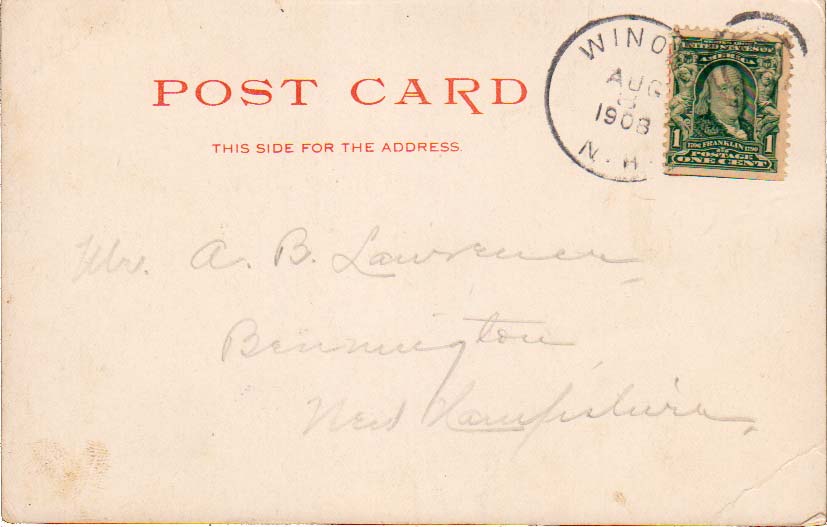 POST CARD
THIS SIDE FOR THE ADDRESS.
WINO
AUG
1908
N. H.
UNITED STATES OF
AMERICA
1 1706 FRANKLIN 1790 1
POSTAGE
ONE CENT
Mr. A. B. Lawrence,
Bennington,
New Hampshire,